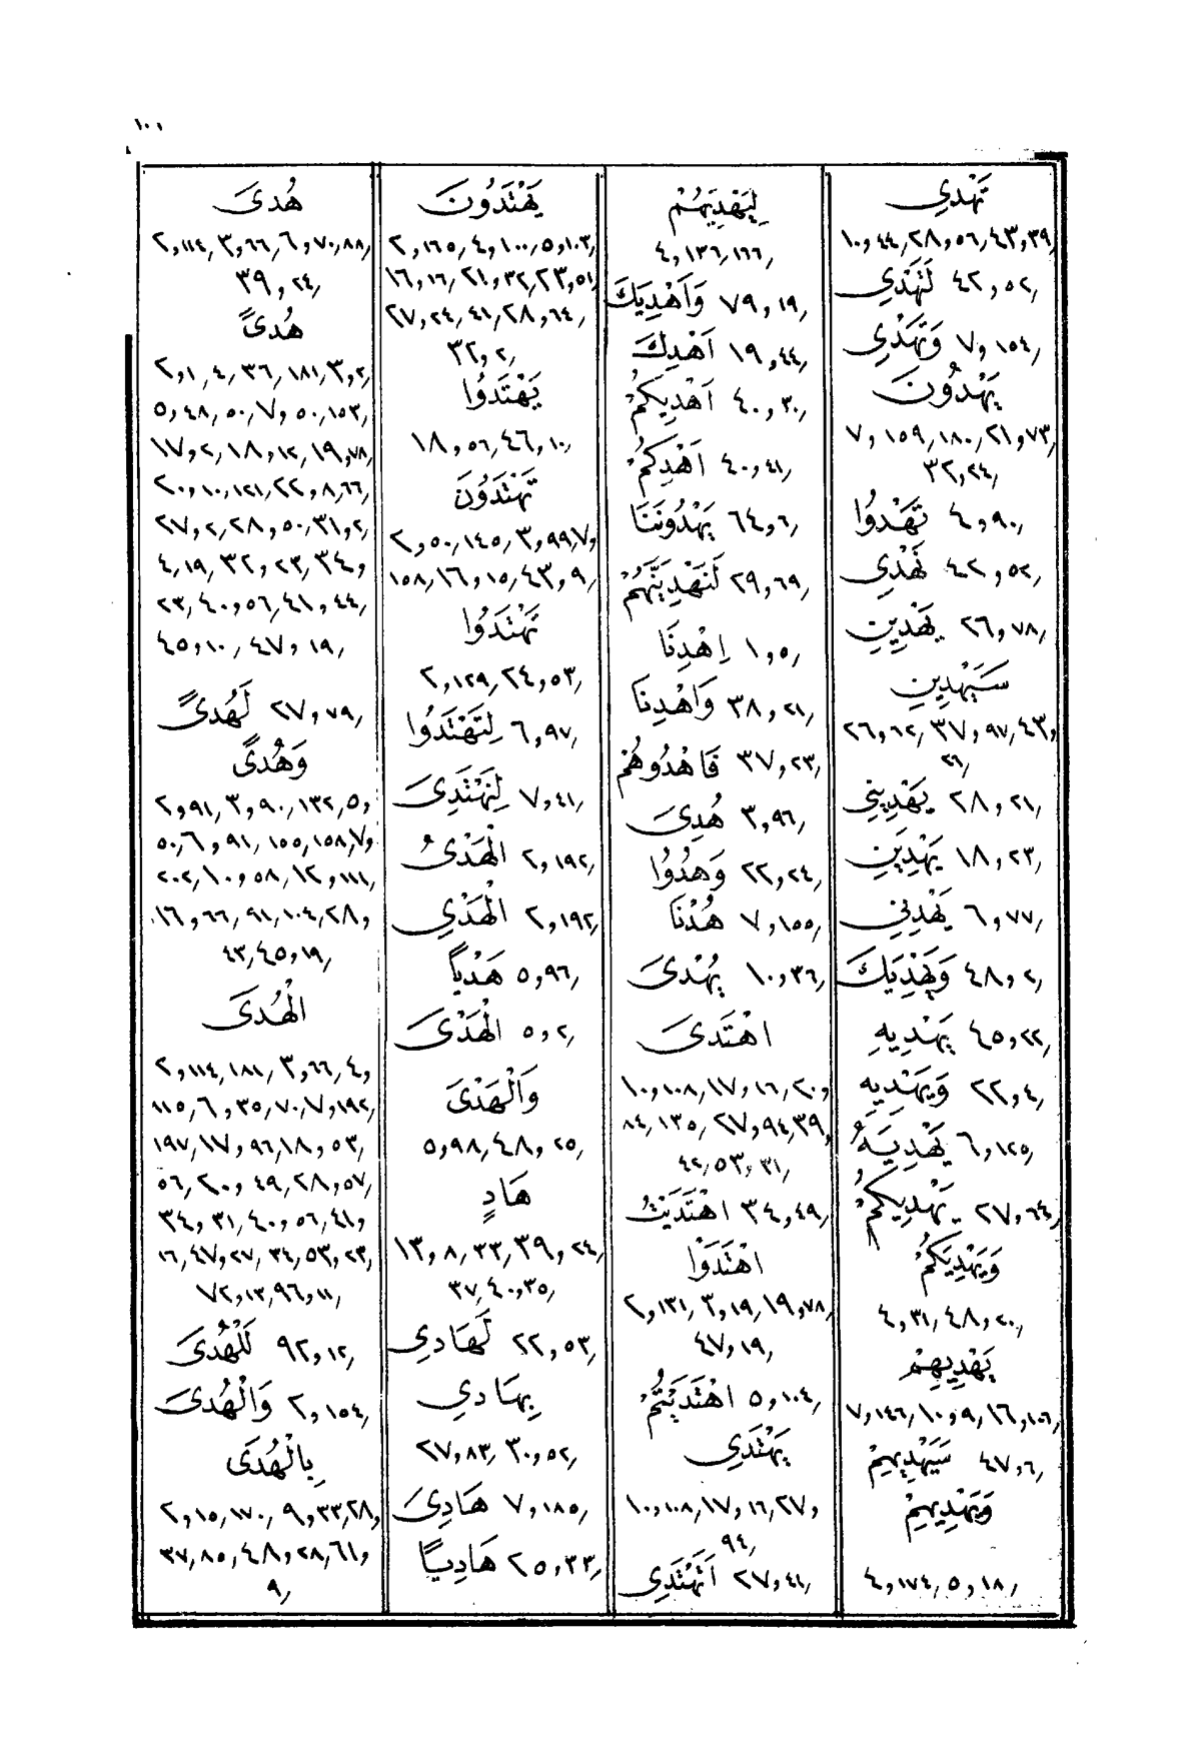 ١٠١
تَهْدِي
١٠,٤٤٫٢٨,٥٦٫٤٣,٣٩٫
٤٢,٥٢٫ لَتَهْدِي
٧,١٥٤٫ وَتَهْدِي
يَهْدُونَ
٧,١٥٩٫١٨٠٫٢١,٧٣٫
٣٢,٢٤٫
٤,٩٠٫ تَهْدُوا
٤٢,٥٢٫ نَهْدِي
٢٦,٧٨٫ يَهْدِينِ
سَيَهْدِينِ
٢٦,٦٢٫٣٧,٩٧٫٤٣,
٢٦٫
٢٨,٢١٫ يَهْدِيَنِي
١٨,٢٣٫ يَهْدِيَنِ
٦,٧٧٫ يَهْدِنِي
٤٨,٢٫ وَيَهْدِيَكَ
٤٥,٢٢٫ يَهْدِيهِ
٢٢,٤٫ وَيَهْدِيهِ
٦,١٢٥٫ يَهْدِيَهُ
٢٧,٦٤٫ يَهْدِيكُمْ
وَيَهْدِيَكُمْ
٤,٣١٫٤٨,٢٠٫
يَهْدِيهِمْ
٧,١٤٦٫١٠,٩٫١٦,١٠٦٫
٤٧,٦٫ سَيَهْدِيهِمْ
وَيَهْدِيهِمْ
٤,١٧٤٫٥,١٨٫
لِيَهْدِيَهُمْ
٤,١٣٦٫١٦٦٫
٧٩,١٩٫ وَأَهْدِيَكَ
١٩,٤٤٫ أَهْدِكَ
٤٠,٣٠٫ أَهْدِيكُمْ
٤٠,٤١٫ أَهْدِكُمْ
٦٤,٦٫ يَهْدُونَنَا
٢٩,٦٩٫ لَنَهْدِيَنَّهُمْ
١,٥٫ اِهْدِنَا
٣٨,٢١٫ وَاهْدِنَا
٣٧,٢٣٫ فَاهْدُوهُمْ
٣,٩٦٫ هُدِىَ
٢٢,٢٤٫ وَهُدُوا
٧,١٥٥٫ هُدْنَا
١٠,٣٦٫ يُهْدَىَ
اهْتَدَىَ
١٠,١٠٨٫١٧,١٦٫٢٠,
٨٤٫١٣٥٫٢٧,٩٤٫٣٩,
٤٢٫٥٣,٣١٫
٣٤,٤٩٫ اهْتَدَيْتُ
اهْتَدَوْا
٢,١٣١٫٣,١٩٫١٩,٧٨٫
٤٧,١٩٫
٥,١٠٤٫ اهْتَدَيْتُمْ
يَهْتَدِي
١٠,١٠٨٫١٧,١٦٫٢٧,
٩٤٫
٢٧,٤٤٫ أَتَهْتَدِي
يَهْتَدُونَ
٢,١٦٥٫٤,١٠٠٫٥,١٠٣٫
١٦,١٦٫٢١,٣٢٫٢٣,٥١٫
٢٧,٢٤٫٤١٫٢٨,٦٤٫
٣٢,٢٫
يَهْتَدُوا
١٨,٥٦٫٤٦,١٠٫
تَهْتَدُونَ
٢,٥٠٫١٤٥٫٣,٩٩٫٧,
١٥٨٫١٦,١٥٫٤٣,٩٫
تَهْتَدُوا
٢,١٢٩٫٢٤,٥٣٫
٦,٩٧٫ لِتَهْتَدُوا
٧,٤١٫ لِنَهْتَدِىَ
٢,١٩٢٫ الْهَدْىُ
٢,١٩٢٫ الْهَدْيِ
٥,٩٦٫ هَدْيًا
٥,٢٫ الْهَدْىَ
وَالْهَدْىَ
٥,٩٨٫٤٨,٢٥٫
هَادٍ
١٣,٨٫٣٣٫٣٩,٢٤٫
٣٧٫٤٠,٣٥٫
٢٢,٥٣٫ لَهَادِي
بِهَادِي
٢٧,٨٣٫٣٠,٥٢٫
٧,١٨٥٫ هَادِىَ
٢٥,٣٣٫ هَادِيًا
هُدَىَ
٢,١١٤٫٣,٦٦٫٦,٧٠٫٨٨٫
٣٩,٢٤٫
هُدىً
٢,١٫٤٫٣٦٫١٨١٫٣,٢٫
٥,٤٨٫٥٠٫٧,٥٠٫١٥٣٫
١٧,٢٫١٨,١٢٫١٩,٧٨٫
٢٠,١٠٫١٢١٫٢٢,٨٫٦٦٫
٢٧,٢٫٢٨,٥٠٫٣١,٢٫
٤٫١٩٫٣٢,٢٣٫٣٤,
٢٣٫٤٠,٥٦٫٤١,٤٤٫
٤٥,١٠٫٤٧,١٩٫
٢٧,٧٩٫ لَهُدىً
وَهُدىً
٢,٩١٫٣,٩٠٫١٣٢٫٥,
٥٠٫٦,٩١٫١٥٥٫١٥٨٫٧,
٢٠٢٫١٠,٥٨٫١٢,١١١٫
١٦,٦٦٫٩١٫١٠٤٫٢٨,
٤٣٫٤٥,١٩٫
الْهُدَىَ
٢,١١٤٫١٨١٫٣,٦٦٫٤,
١١٥٫٦,٣٥٫٧٠٫٧,١٩٢٫
١٩٧٫١٧,٩٦٫١٨,٥٣٫
٥٦٫٢٠,٤٩٫٢٨,٥٧٫
٣٤,٣١٫٤٠,٥٦٫٤١,
١٦٫٤٧,٢٧٫٣٤٫٥٣,٢٣٫
٧٢,١٣٫٩٦,١١٫
٩٢,١٢٫ لَلْهُدَىَ
٢,١٥٤٫ وَالْهُدَىَ
بِالْهُدَىَ
٢,١٥٫١٧٠٫٩,٣٣٫٢٨,
٣٧٫٨٥٫٤٨,٢٨٫٦١,
٩٫